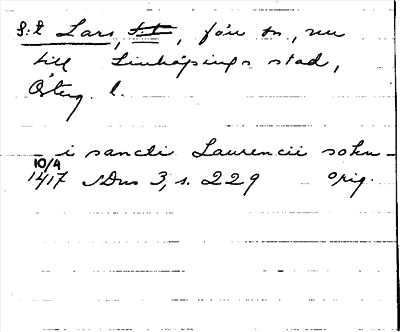 S:t Lars, f. sn, nu
till Linköpings stad,
Österg. l.
i sancti Laurencii sokn
10/9
1417 SDns 3, s. 229 orig.